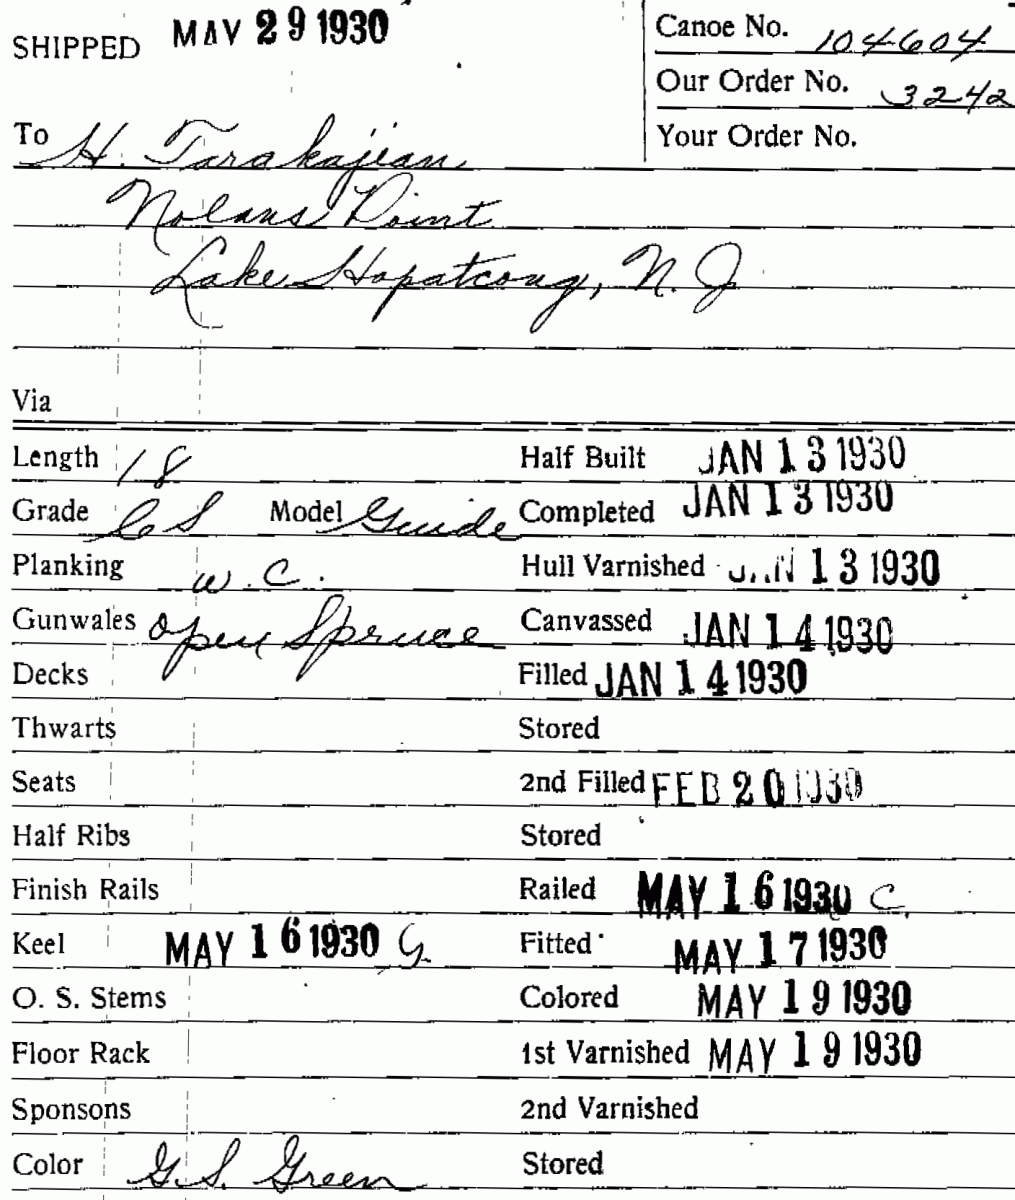 SHIPPED MAY 29 1930
Canoe No. 104604
Our Order No. 3242
Your Order No.
To H. Tarakajian
Nolans Point
Lake Hopatcong, N. J
Via
Length 18 Half Built JAN 13 1930
Grade CS Model Guide Completed JAN 13 1930
Planking W. C. Hull Varnished JAN 13 1930
Gunwales open Spruce Canvassed JAN 14 1930
Decks Filled JAN 14 1930
Thwarts Stored
Seats 2nd Filled FEB 20 1930
Half Ribs Stored
Finish Rails Railed MAY 16 1930 C
Keel MAY 16 1930 G. Fitted MAY 17 1930
O. S. Stems Colored MAY 19 1930
Floor Rack 1st Varnished MAY 19 1930
Sponsons 2nd Varnished
Color G.S. Green Stored